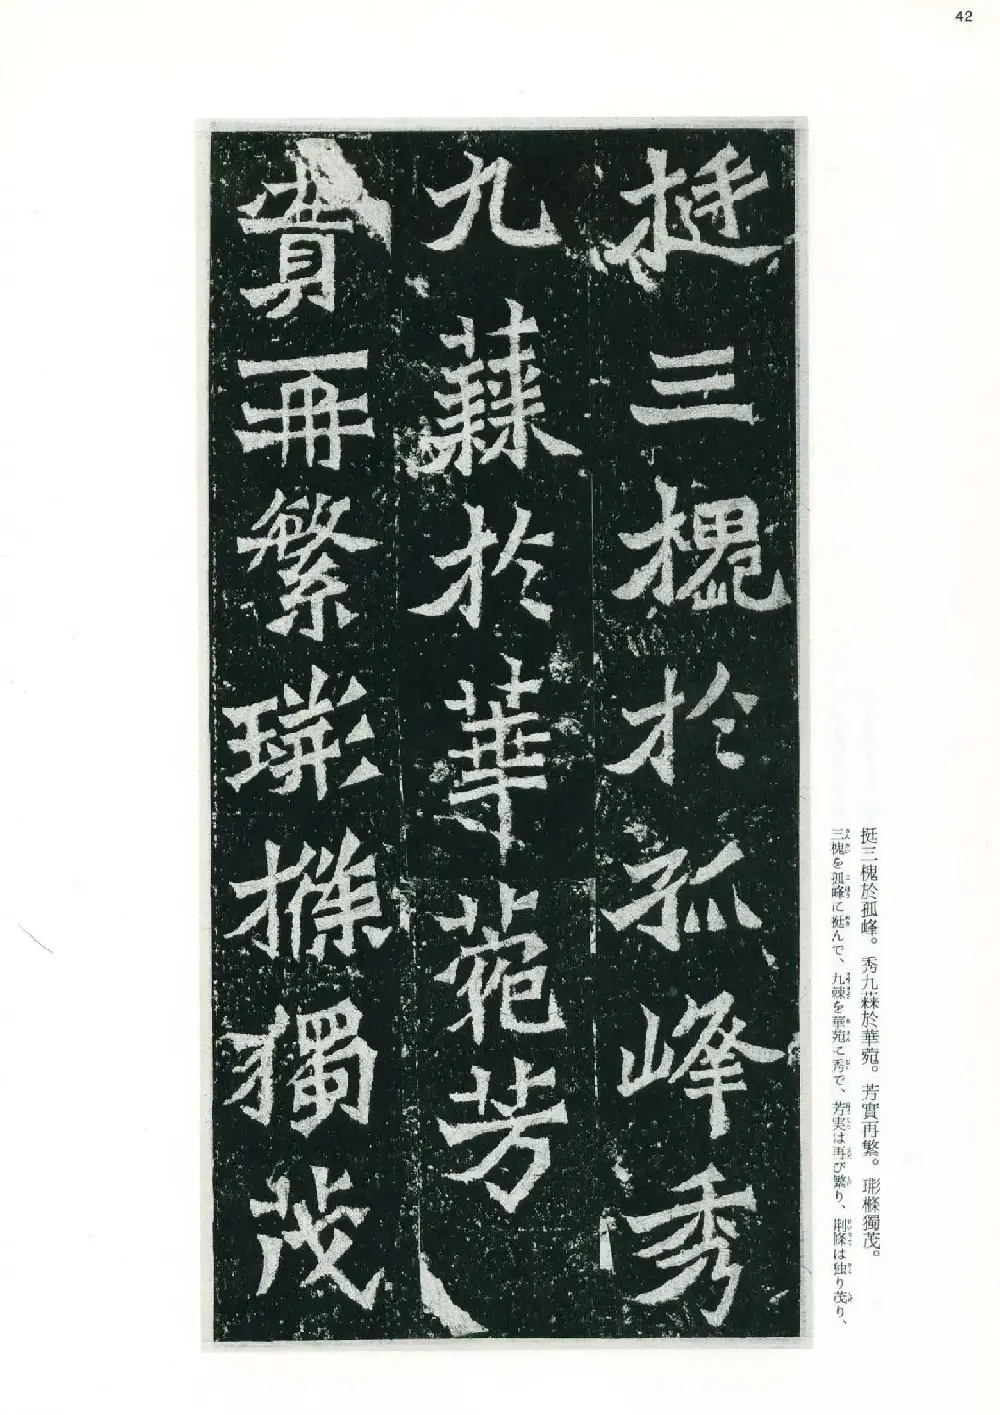 42
挺三槐於孤峰秀
九蕀於華菀芳
實再繁琾樤獨茂
挺三槐於孤峰。秀九蕀於華菀。芳實再繁。琾樤獨茂。
三槐を孤峰に挺んで、九棘を華苑に秀で、芳実は再び繁り、荆條は独り茂り、